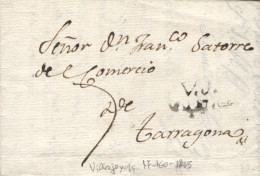 Señor Dn. Franco Satorre
del Comercio
de
Tarragona
V.J.
17-AGO-1805